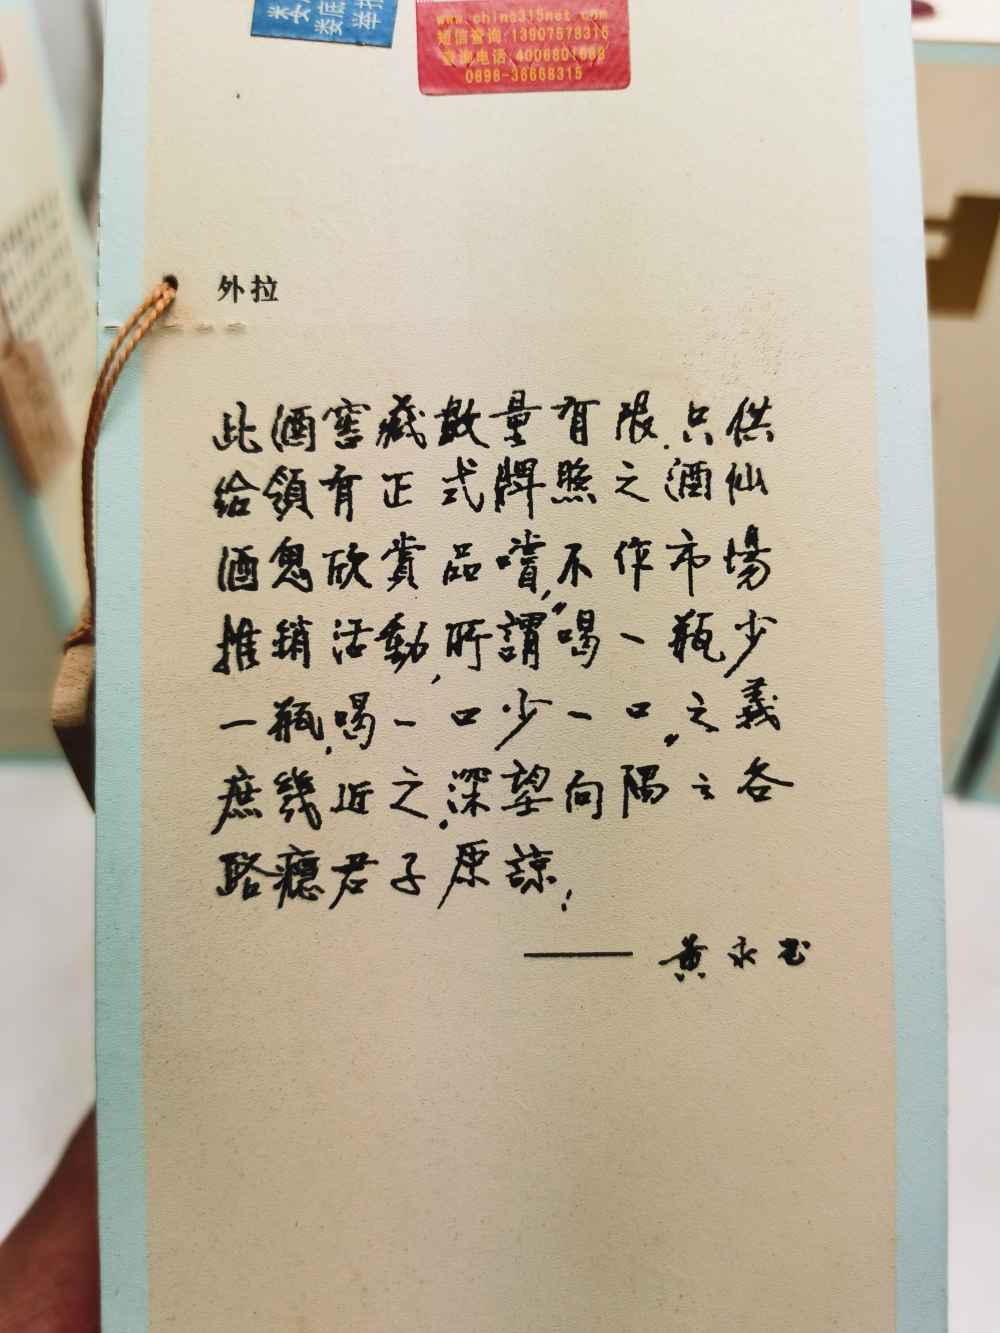 www.china315net.com
短信查询:13907578315
查询电话:4006801688
0898-36668315
外拉
此酒窖藏數量有限,只供
給領有正式牌照之酒仙
酒鬼欣賞品嚐,不作市場
推銷活動,所謂“喝一瓶少
一瓶,喝一口少一口”之義
庶幾近之,深望向隅之各
路癮君子原諒!
—— 黄永玉